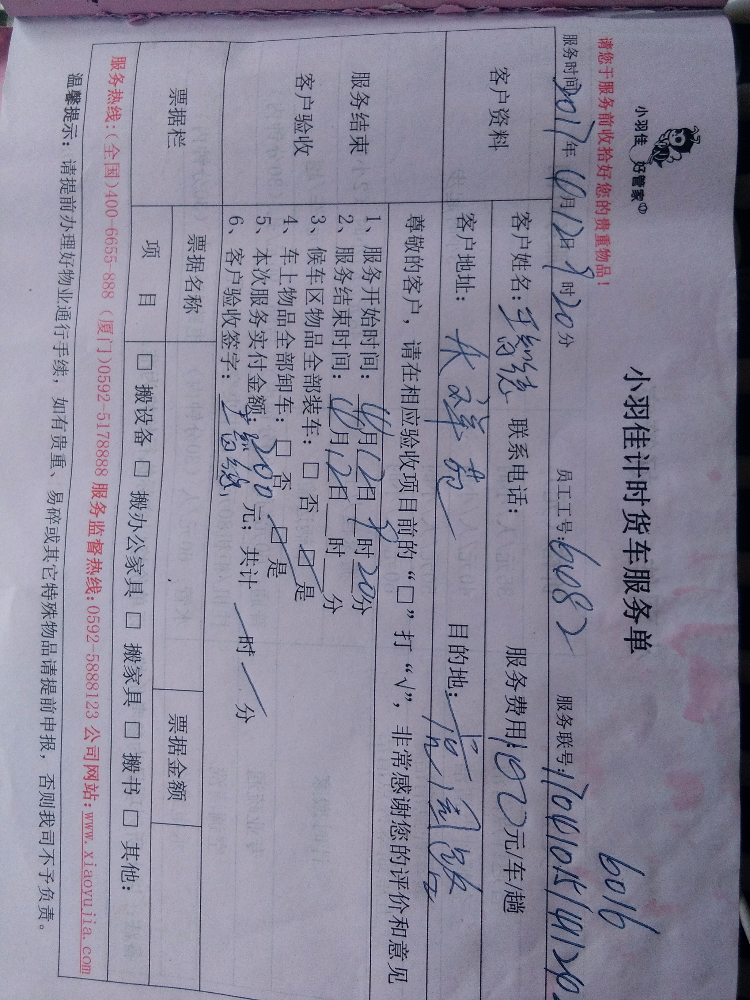 小羽佳 好管家
请您于服务前收拾好您的贵重物品！
小羽佳计时货车服务单
6016
服务时间 2017年 4月12日 9时20分 员工工号:6082 服务联号:
客户资料
客户姓名: 联系电话: 服务费用: 元/车/趟
客户地址: 目的地:
服务结束
客户验收
尊敬的客户，请在相应验收项目前的“□”打“√”，非常感谢您的评价和意见
1、服务开始时间: 4月12日 9时20分
2、服务结束时间: 4月12日 时 分
3、候车区物品全部装车: □ 否 □ 是
4、车上物品全部卸车: □ 否 □ 是
5、本次服务实付金额: 200 元; 共计 时 分
6、客户验收签字:
票据栏
票据名称 票据金额
项 目 □ 搬设备 □ 搬办公家具 □ 搬家具 □ 搬书 □ 其他:
服务热线:(全国)400-6655-888 (厦门)0592-5178888 服务监督热线:0592-5888123 公司网站:www.xiaoyujia.com
温馨提示: 请提前办理好物业通行手续，如有贵重、易碎或其它特殊物品请提前申报，否则我司不予负责。